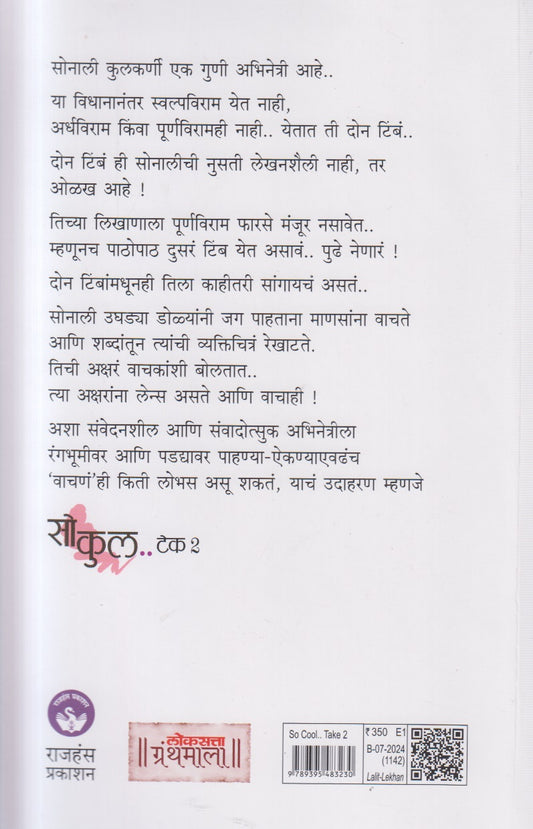 सोनाली कुलकर्णी एक गुणी अभिनेत्री आहे..
या विधानानंतर स्वल्पविराम येत नाही,
अर्धविराम किंवा पूर्णविरामही नाही.. येतात ती दोन टिंबं..
दोन टिंबं ही सोनालीची नुसती लेखनशैली नाही, तर
ओळख आहे !
तिच्या लिखाणाला पूर्णविराम फारसे मंजूर नसावेत..
म्हणूनच पाठोपाठ दुसरं टिंब येत असावं.. पुढे नेणारं !
दोन टिंबांमधूनही तिला काहीतरी सांगायचं असतं..
सोनाली उघड्या डोळ्यांनी जग पाहताना माणसांना वाचते
आणि शब्दांतून त्यांची व्यक्तिचित्रं रेखाटते.
तिची अक्षरं वाचकांशी बोलतात..
त्या अक्षरांना लेन्स असते आणि वाचाही !
अशा संवेदनशील आणि संवादोत्सुक अभिनेत्रीला
रंगभूमीवर आणि पडद्यावर पाहण्या-ऐकण्याएवढंच
'वाचणं'ही किती लोभस असू शकतं, याचं उदाहरण म्हणजे
सो कुल.. टेक २
राजहंस प्रकाशन
राजहंस
प्रकाशन
लोकसत्ता
॥ग्रंथमाला॥
So Cool.. Take 2
9 789395 483230
₹350 E1
B-07-2024
(1142)
Lalit-Lekhan